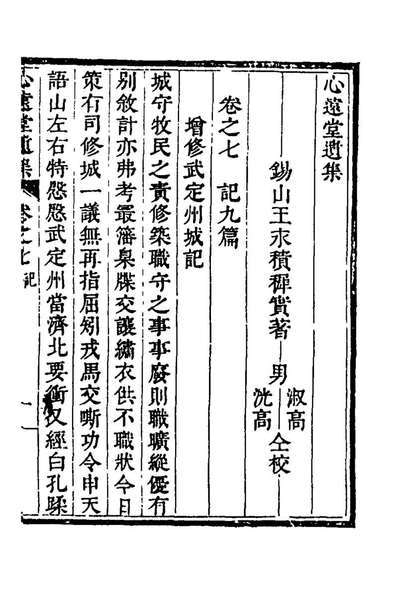 心遠堂遺集
錫山王永積穉實著 男 淑高 沈高 仝校
卷之七 記九篇
增修武定州城記
城守牧民之責修築職守之事事廢則職曠縱優有
别敘計亦弗考最籓臬牒交讓繡衣供不職狀今日
策有司修城一議無再指屈矧戎馬交嘶功令申天
語山左右特慇慇武定州當濟北要衝又經白孔蹂
心遠堂遺集 卷之七 記 一